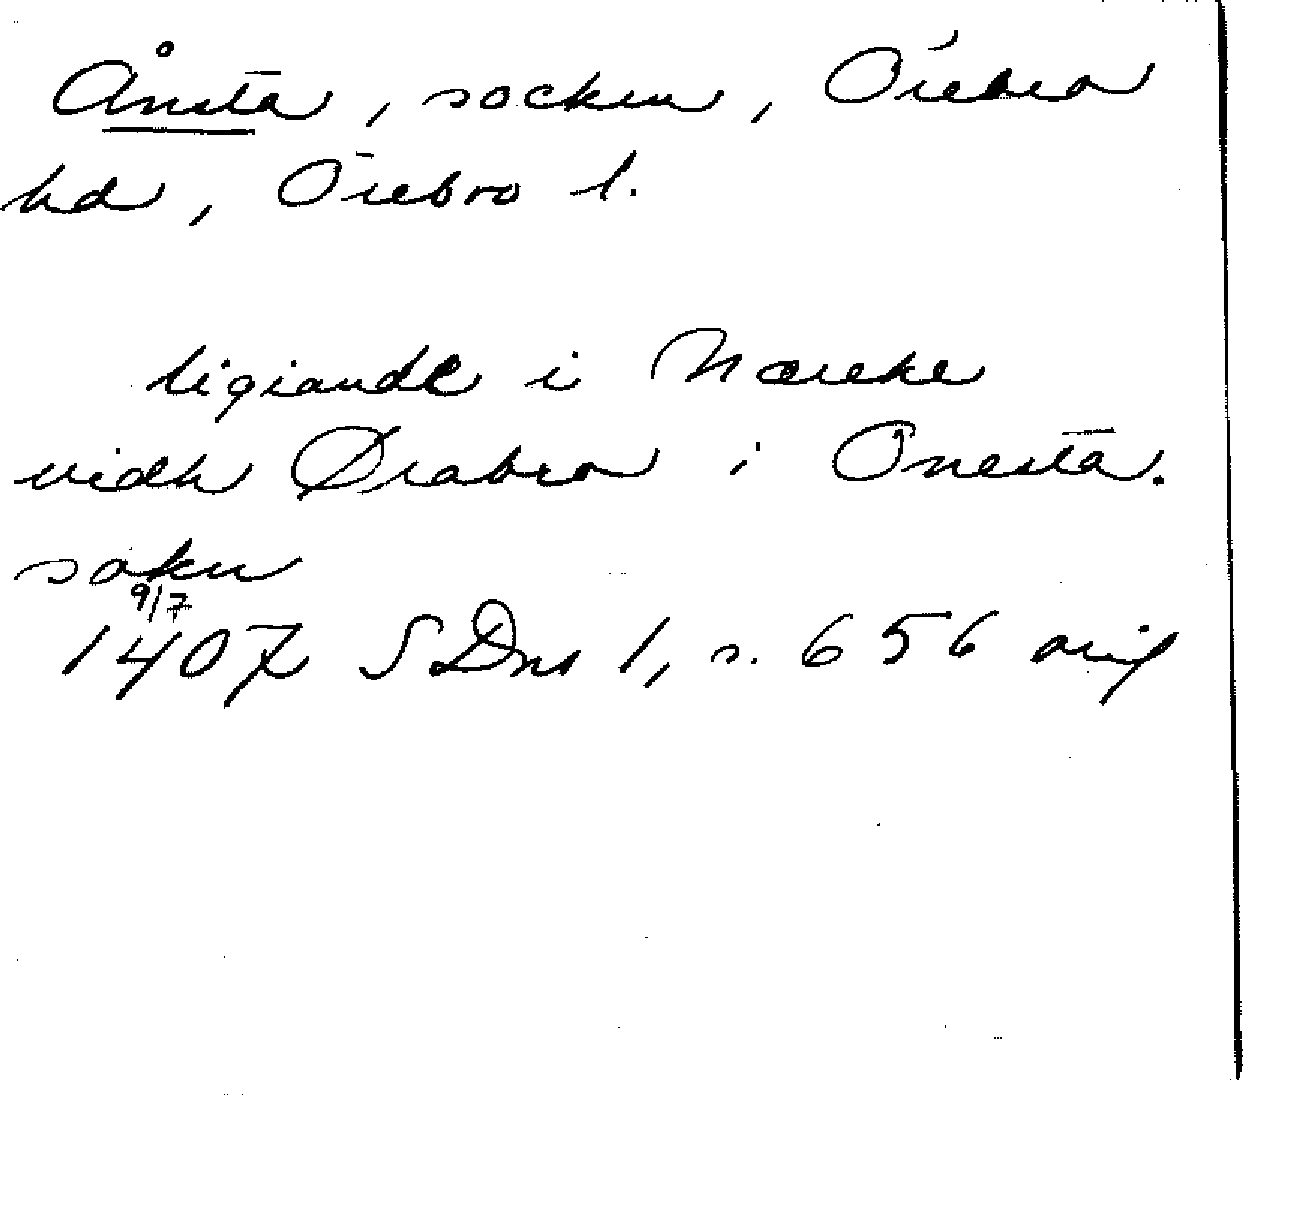 Ånsta, socken, Örebro
hd, Örebro l.
ligiande i Næreke
vidh Ørabro i Onesta.
sokn
9/7
1407 SDns 1, s. 656 orig